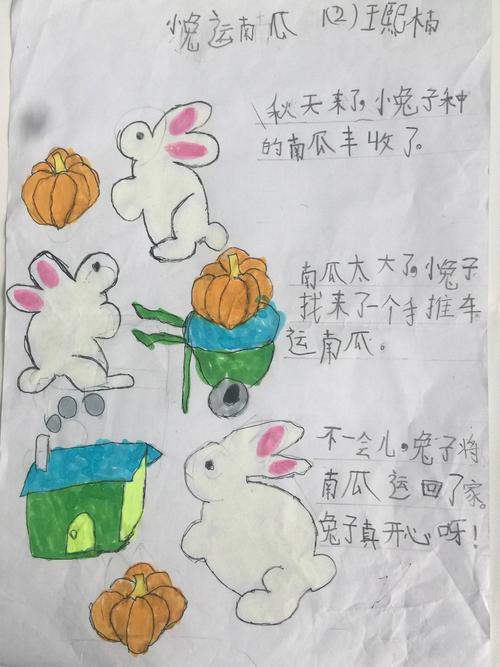 小兔运南瓜 1(2)王熙楠
秋天来了,小兔子种
的南瓜丰收了。
南瓜太大了,小兔子
找来了一个手推车
运南瓜。
不一会儿,兔子将
南瓜运回了家。
兔子真开心呀!